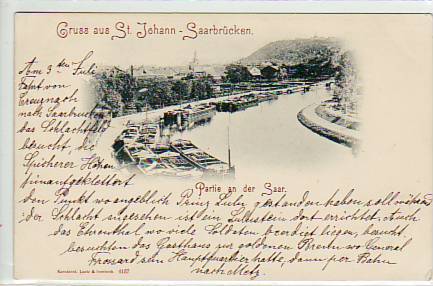 Gruss aus St. Johann - Saarbrücken.
Am 3ten Juli
Fahrt von
Creuznach
nach Saarbrücken
das Schlachtfeld
besucht, die
Spicherer Höhen
hinaufgeklettert
Partie an der Saar.
den Punkt wo angeblich Prinz Lulu gestanden haben soll während
der Schlacht angesehen ist ein dort errichtet. Auch
das Ehrenthal wo viele Soldaten beerdigt liegen, besucht,
besuchten das Gasthaus zur goldenen Bremm wo General
Frossard sein Hauptquartier hatte, dann per Bahn
nach Metz.
Kunstanst. Lautz & Isenbeck 4127